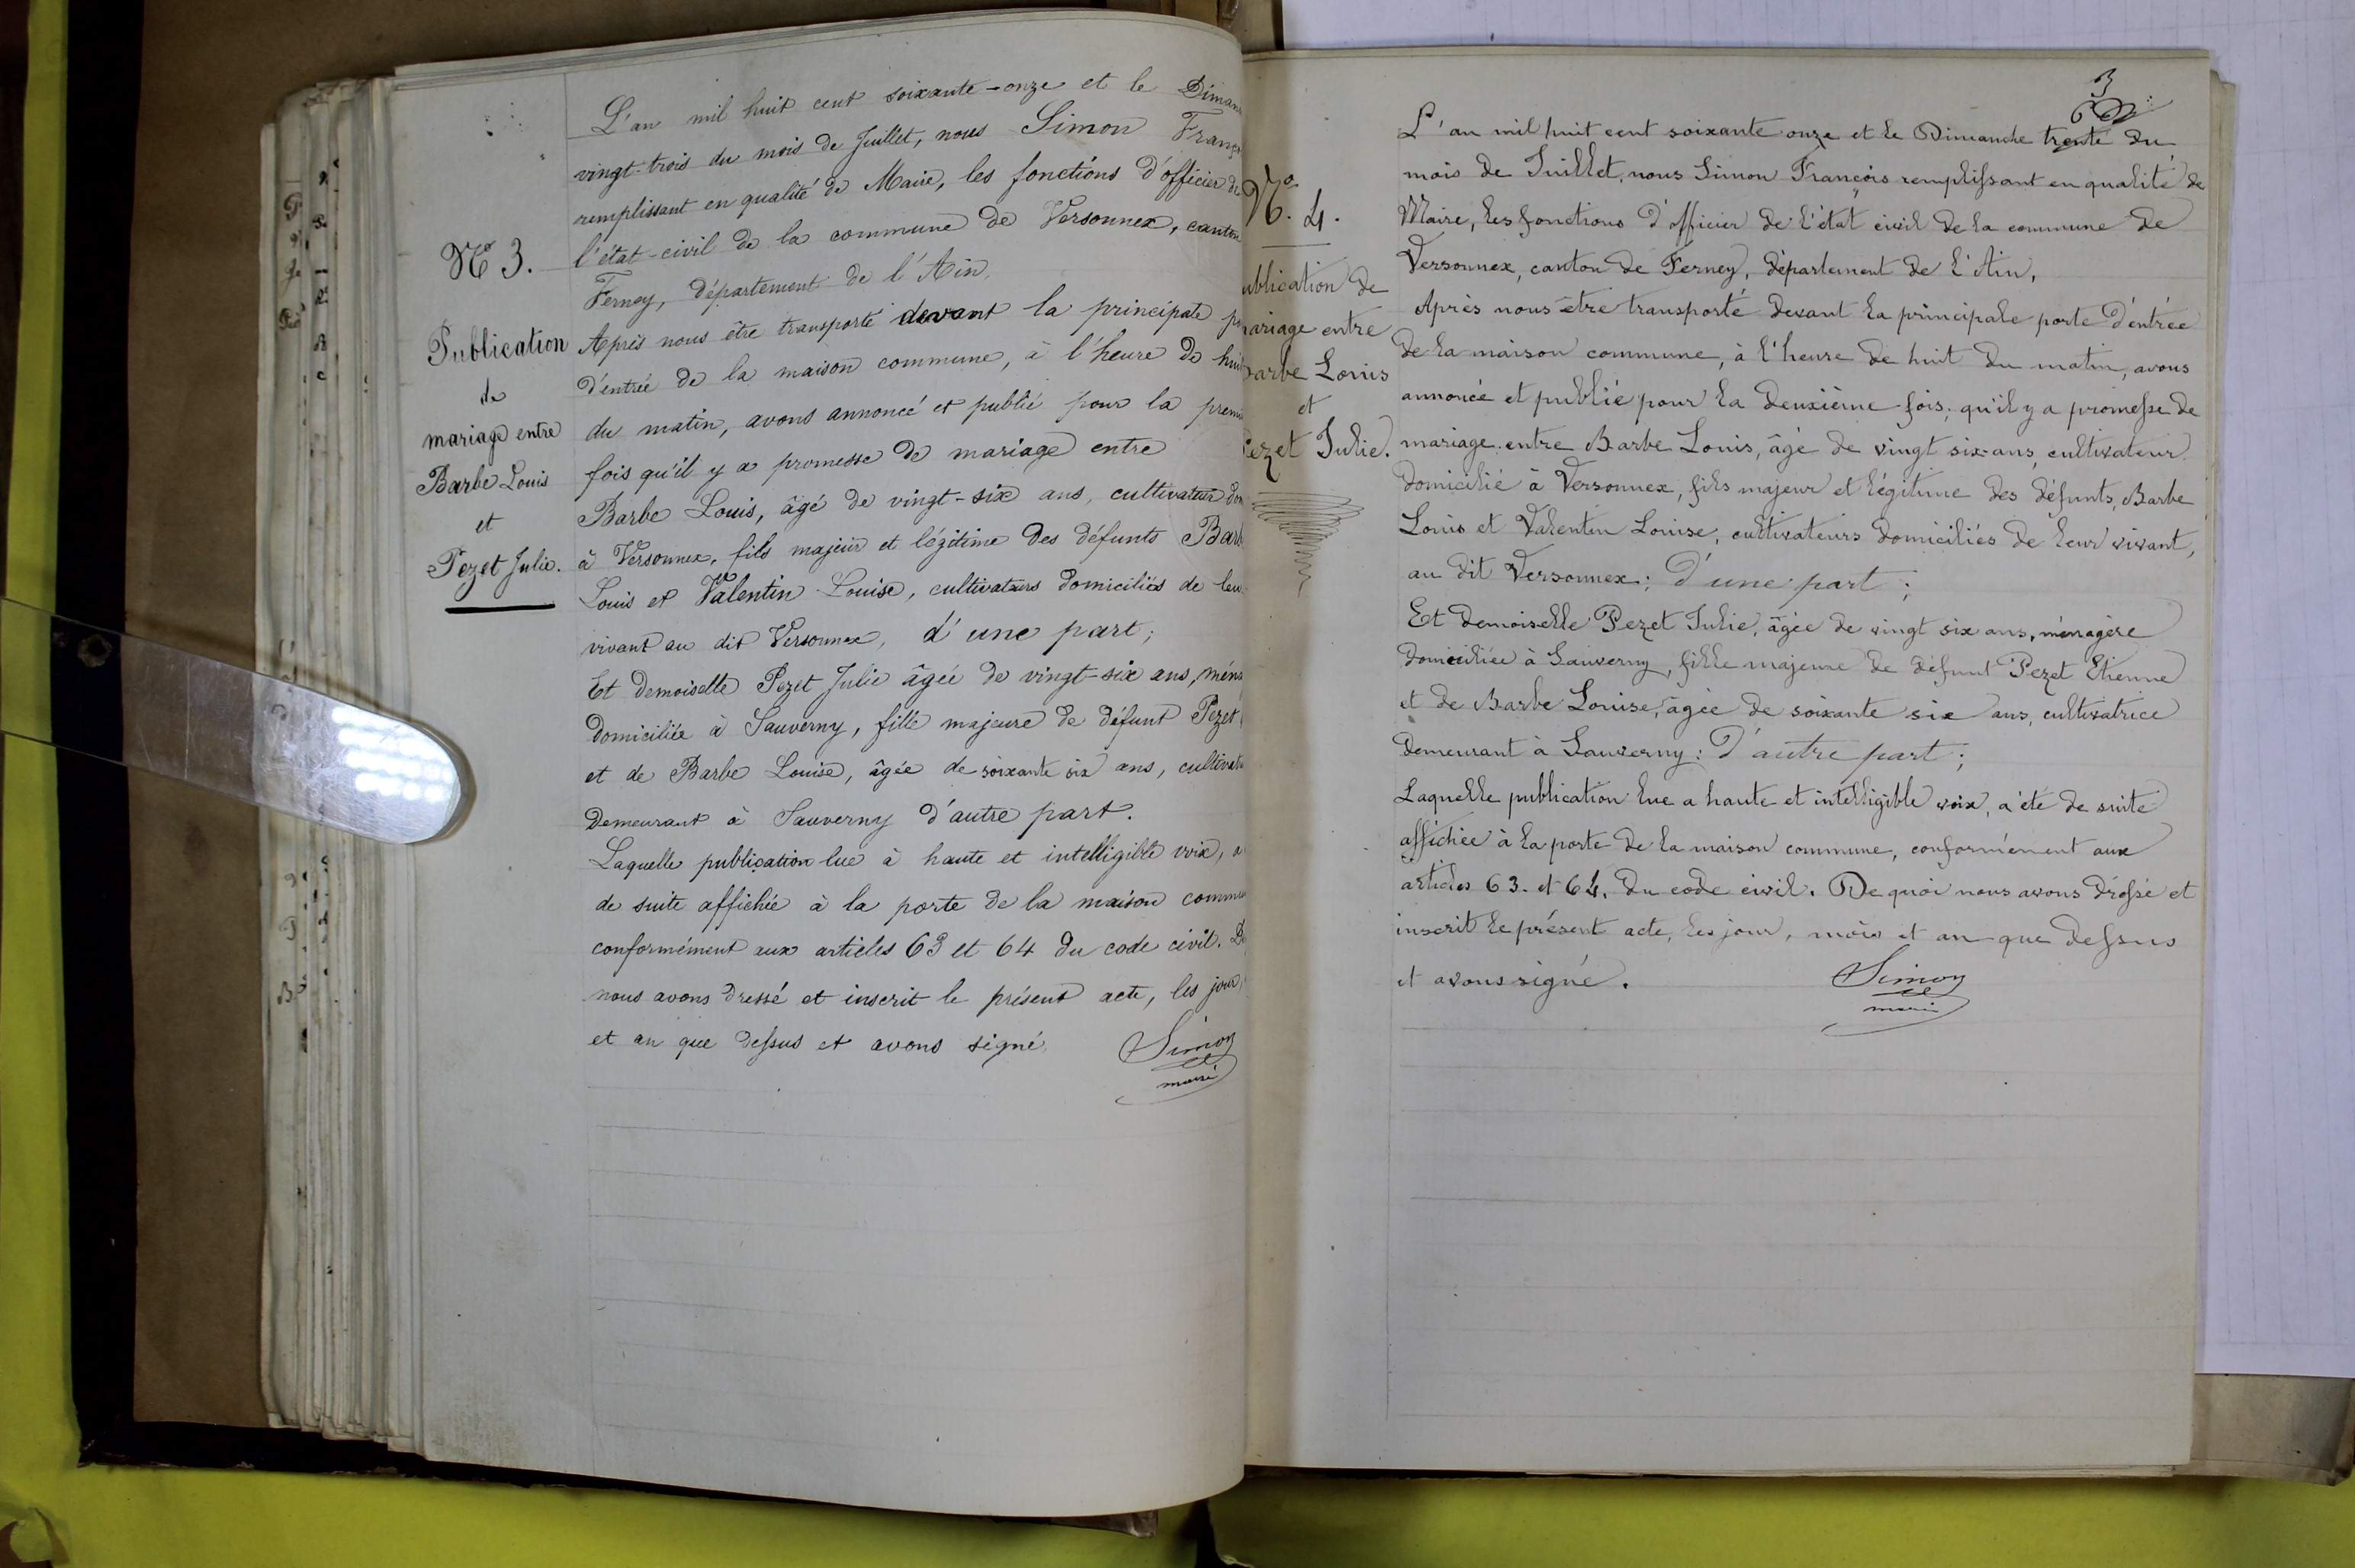 N° 3.
Publication
de
mariage entre
Barbe Louis
et
Pezet Julie.
L'an mil huit cent soixante-onze et le Diman
vingt-trois du mois de Juillet, nous Simon Franç
remplissant en qualité de Maire, les fonctions d'officier de
l'état-civil de la commune de Versonnex, canton
Ferney, département de l'Ain,
Après nous être transporté devant la principale
d'entrée de la maison commune, à l'heure de huit
du matin, avons annoncé et publié pour la premi
fois qu'il y a promesse de mariage entre
Barbe Louis, âgé de vingt-six ans, cultivateur dom
à Versonnex, fils majeur et légitime des défunts Barb
Louis et Valentin Louise, cultivateurs domiciliés de leur
vivant au dit Versonnex, d'une part;
Et demoiselle Pezet Julie âgée de vingt-six ans, ména
domiciliée à Sauverny, fille majeure de défunt Pezet
et de Barbe Louise, âgée de soixante six ans, cultivat
demeurant à Sauverny d'autre part.
Laquelle publication lue à haute et intelligible voix, a
de suite affichée à la porte de la maison commu
conformément aux articles 63 et 64 du code civil. De
nous avons dressé et inscrit le présent acte, les jour,
et an que dessus et avons signé
Simon
maire
3
N° 4.
ublication de
ariage entre
arbe Louis
et
ezet Julie.
L'an mil huit cent soixante onze et le Dimanche trente du
mois de Juillet, nous Simon François remplissant en qualité de
Maire, les fonctions d'officier de l'état civil de la commune de
Versonnex, canton de Ferney, département de l'Ain,
Après nous être transporté devant la principale porte d'entrée
de la maison commune, à l'heure de huit du matin, avons
annoncé et publié pour la deuxième fois, qu'il y a promesse de
mariage entre Barbe Louis, âgé de vingt six ans, cultivateur
domicilié à Versonnex, fils majeur et légitime des défunts, Barbe
Louis et Valentin Louise, cultivateurs domiciliés de leur vivant,
au dit Versonnex; d'une part;
Et demoiselle Pezet Julie, âgée de vingt six ans, ménagère
domiciliée à Sauverny, fille majeure de défunt Pezet Etienne
et de Barbe Louise, âgée de soixante six ans, cultivatrice
demeurant à Sauverny: d'autre part;
Laquelle publication lue a haute et intelligible voix, a été de suite
affichée à la porte de la maison commune, conformément aux
articles 63. et 64. du code civil. De quoi nous avons dréssé et
inscrit le présent acte, les jour, mois et an que dessus
et avons signé.
Simon
maire